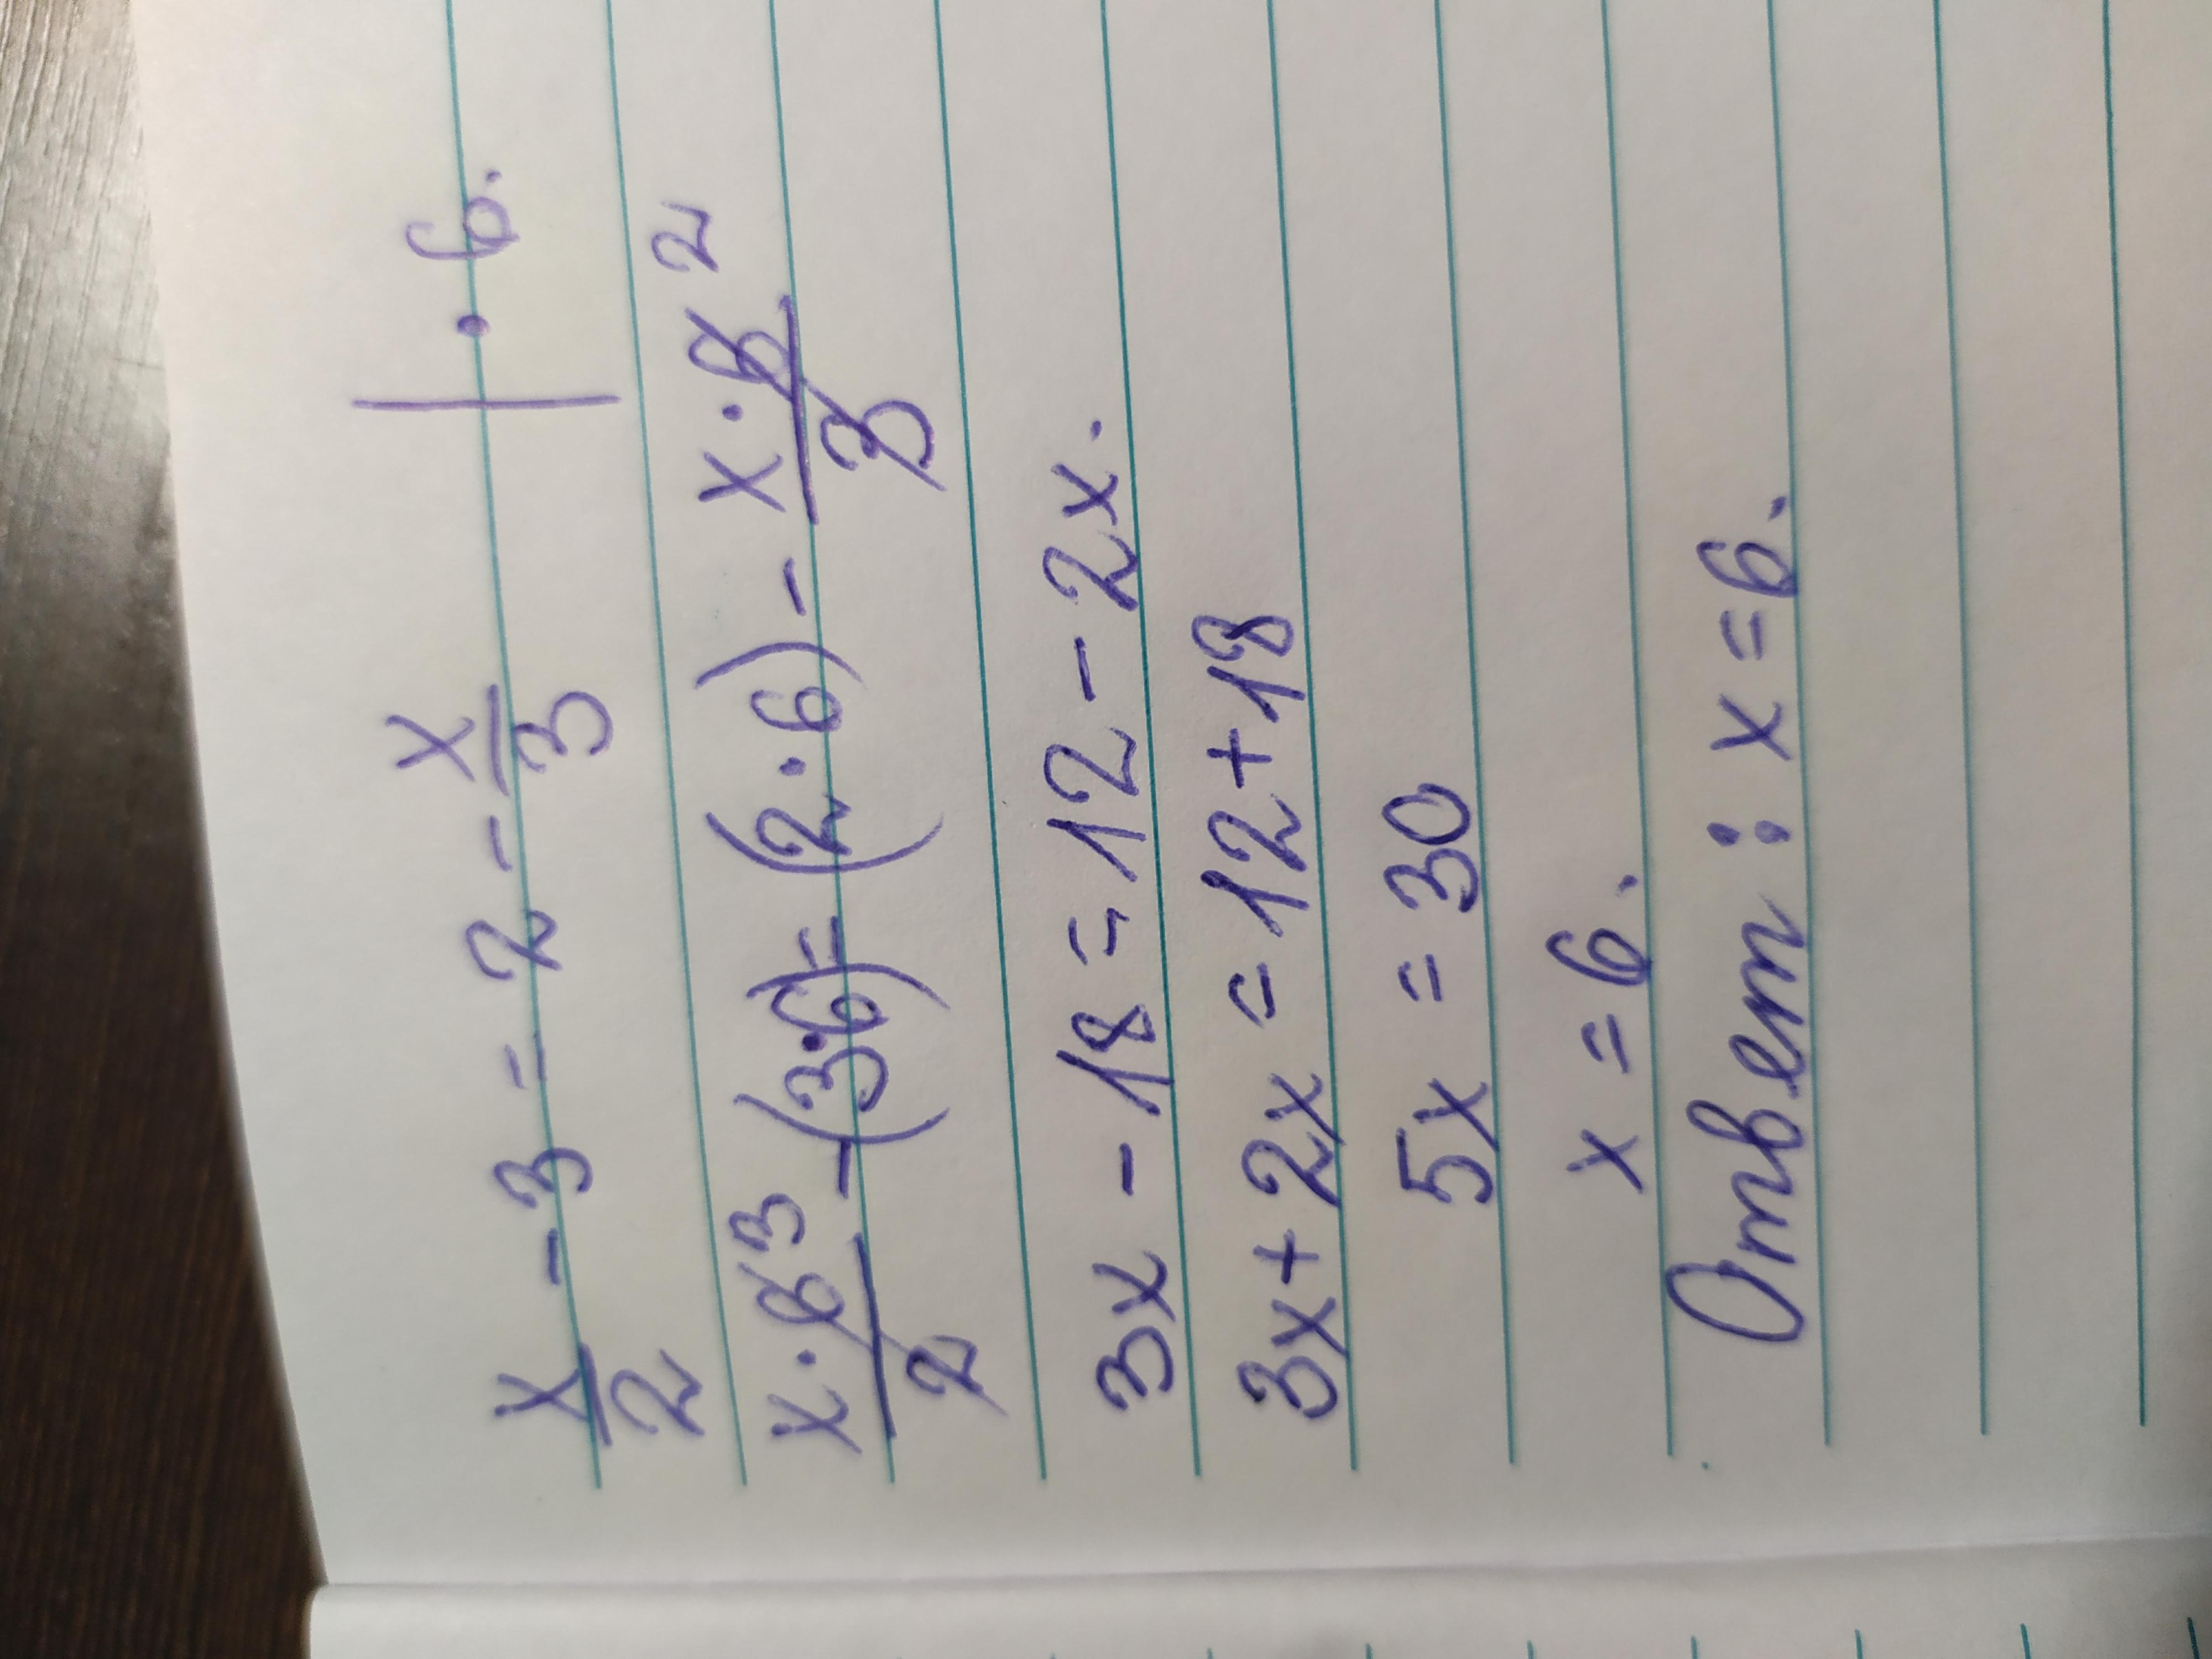 x/2 - 3 = 2 - x/3 | · 6.
x·6³/2 - (3·6) = (2·6) - x·6²/3
3x - 18 = 12 - 2x.
3x + 2x = 12 + 18
5x = 30
x = 6.
Ответ: x = 6.